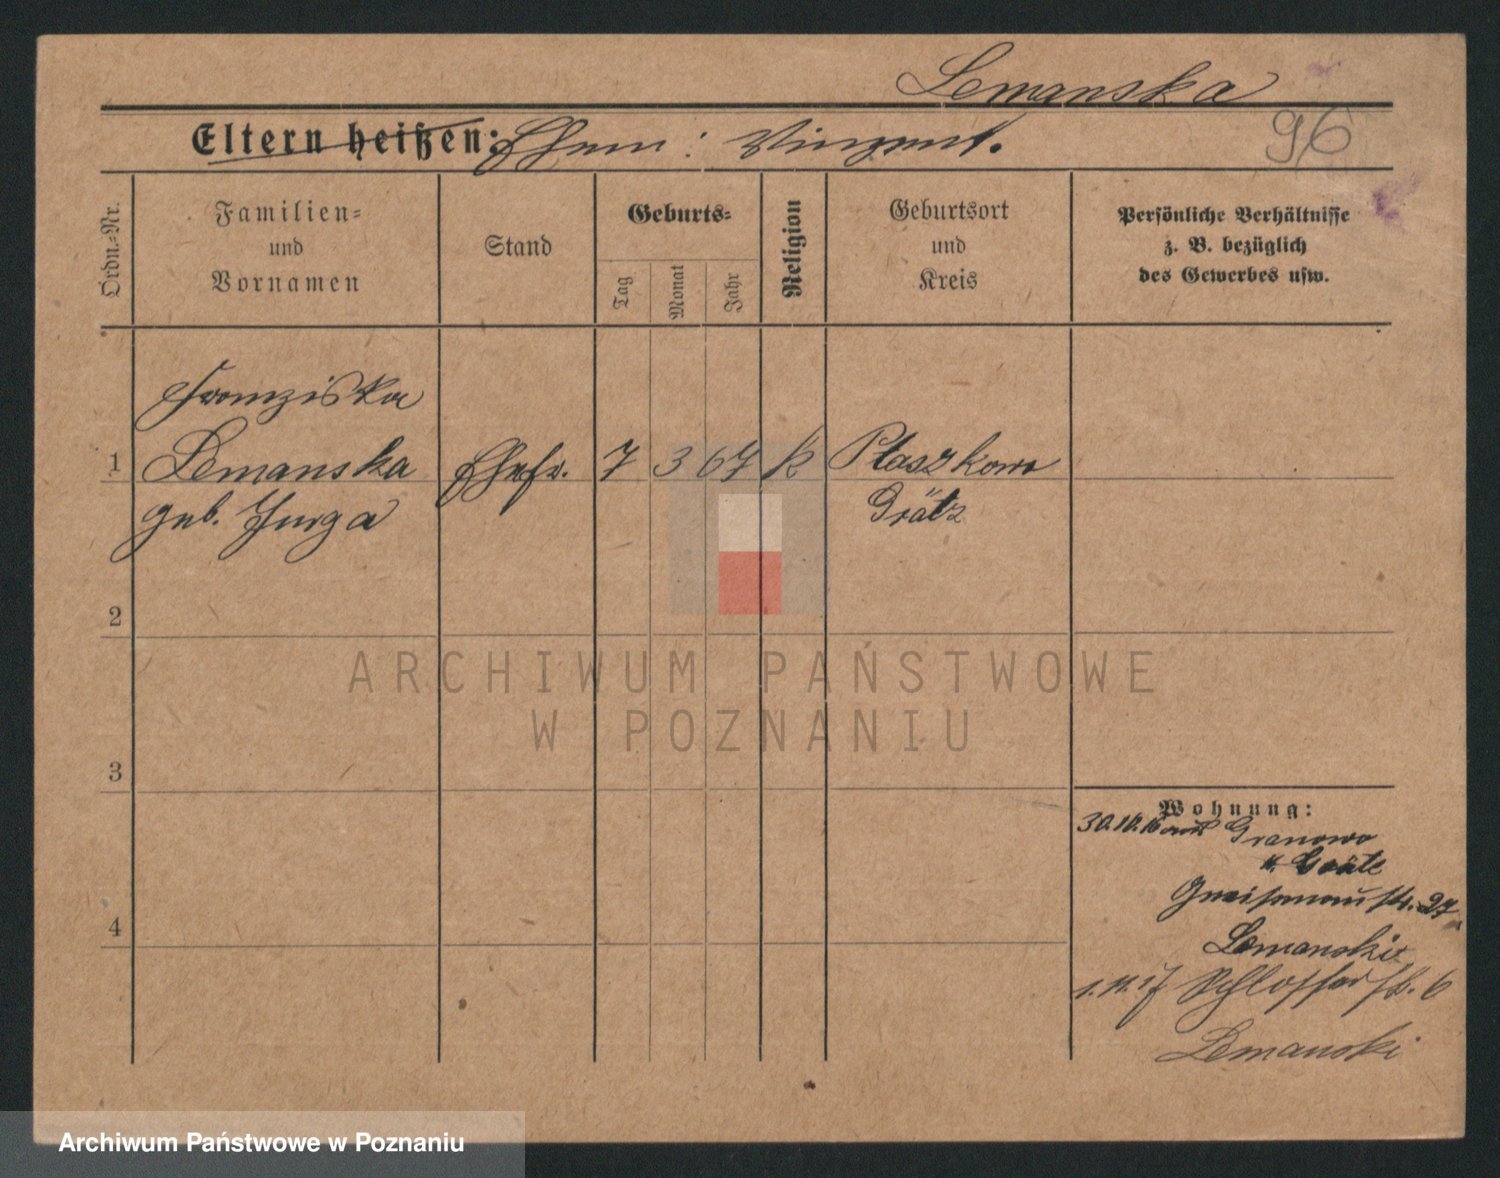 Lemanska
Eltern heißen: Ehem: Vinzent.
96
Ordn.-Nr.
Familien-
und
Vornamen
Stand
Geburts-
Tag
Monat
Jahr
Religion
Geburtsort
und
Kreis
Persönliche Verhältnisse
z. B. bezüglich
des Gewerbes usw.
Franziska
1 Lemanska Ehefr. 7 3 67 k Ptaszkowo
geb. Jurga Grätz
2
3
4
Wohnung:
30.10.16 aus Granowo
Gneisenaustr. 27
Lemanski
1.11.17 Schlosserstr. 6
Lemanski
ARCHIWUM PAŃSTWOWE
W POZNANIU
Archiwum Państwowe w Poznaniu